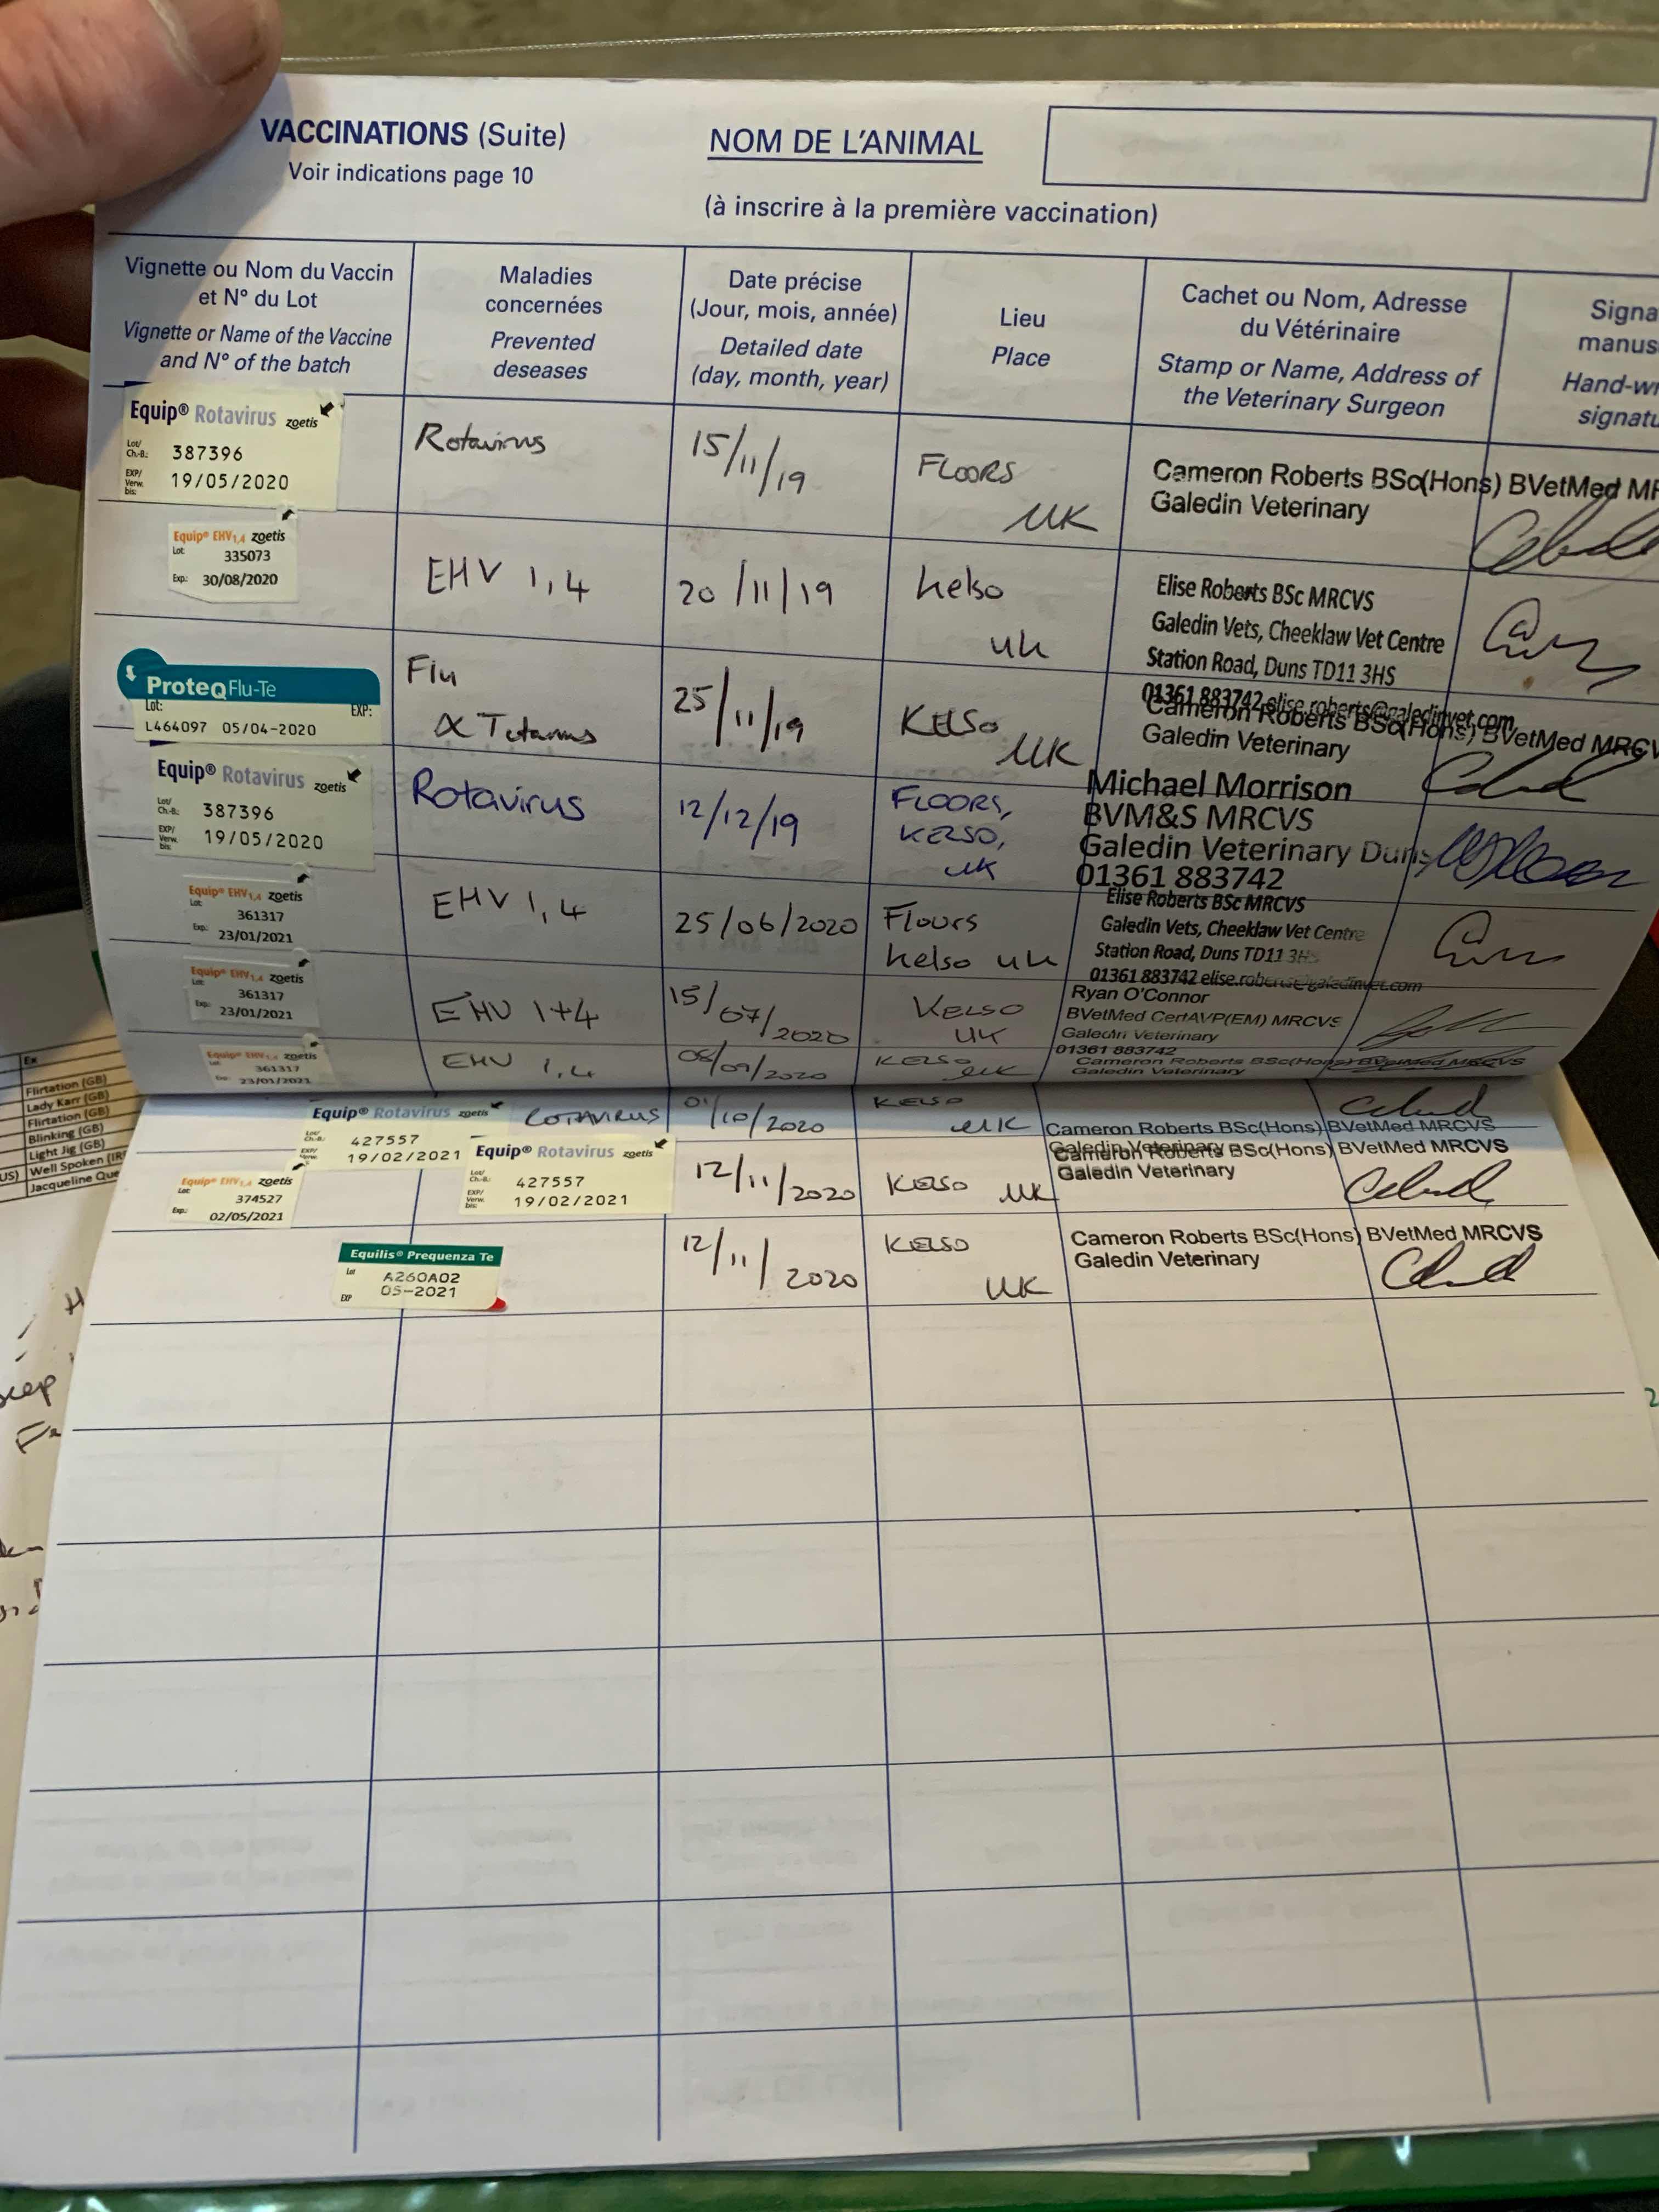 VACCINATIONS (Suite)
Voir indications page 10
NOM DE L'ANIMAL
(à inscrire à la première vaccination)
Vignette ou Nom du Vaccin
et N° du Lot
Vignette or Name of the Vaccine
and N° of the batch
Maladies
concernées
Prevented
deseases
Date précise
(Jour, mois, année)
Detailed date
(day, month, year)
Lieu
Place
Cachet ou Nom, Adresse
du Vétérinaire
Stamp or Name, Address of
the Veterinary Surgeon
Signa
manus
Hand-wr
signatu
Equip® Rotavirus zoetis
Lot/
Ch.-B.: 387396
EXP/
Verw.
bis: 19/05/2020
Rotavirus
15/11/19
FLOORS
UK
Cameron Roberts BSc(Hons) BVetMed MR
Galedin Veterinary
Equip® EHV1,4 zoetis
Lot: 335073
Exp.: 30/08/2020
EHV 1,4
20/11/19
Kelso
UK
Elise Roberts BSc MRCVS
Galedin Vets, Cheeklaw Vet Centre
Station Road, Duns TD11 3HS
01361 883742 elise.roberts@galedinvet.com
ProteqFlu-Te
Lot: EXP:
L464097 05/04-2020
Flu
& Tetanus
25/11/19
KELSO
UK
Cameron Roberts BSc(Hons) BVetMed MRCV
Galedin Veterinary
Equip® Rotavirus zoetis
Lot/
Ch.-B.: 387396
EXP/
Verw.
bis: 19/05/2020
Rotavirus
12/12/19
FLOORS,
KELSO,
UK
Michael Morrison
BVM&S MRCVS
Galedin Veterinary Duns
01361 883742
Equip® EHV1,4 zoetis
Lot: 361317
Exp.: 23/01/2021
EHV 1,4
25/06/2020
Floors
Kelso UK
Elise Roberts BSc MRCVS
Galedin Vets, Cheeklaw Vet Centre
Station Road, Duns TD11 3HS
01361 883742 elise.roberts@galedinvet.com
Equip® EHV1,4 zoetis
Lot: 361317
Exp.: 23/01/2021
EHV 1+4
15/07/2020
KELSO
UK
Ryan O'Connor
BVetMed CertAVP(EM) MRCVS
Galedin Veterinary
01361 883742
Equip® EHV1,4 zoetis
Lot: 361317
Exp.: 23/01/2021
EHV 1,4
08/09/2020
KELSO
UK
Cameron Roberts BSc(Hons) BVetMed MRCVS
Galedin Veterinary
Equip® Rotavirus zoetis
Lot/
Ch.-B.: 427557
EXP/
Verw.
bis: 19/02/2021
ROTAVIRUS
/10/2020
KELSO
UK
Cameron Roberts BSc(Hons) BVetMed MRCVS
Galedin Veterinary
Equip® EHV1,4 zoetis
Lot: 374527
Exp.: 02/05/2021
Equip® Rotavirus zoetis
Lot/
Ch.-B.: 427557
EXP/
Verw.
bis: 19/02/2021
12/11/2020
KELSO UK
Cameron Roberts BSc(Hons) BVetMed MRCVS
Galedin Veterinary
Equilis® Prequenza Te
Lot A260A02
EXP 05-2021
12/11/2020
KELSO
UK
Cameron Roberts BSc(Hons) BVetMed MRCVS
Galedin Veterinary
Ex
Flirtation (GB)
Lady Karr (GB)
Flirtation (GB)
Blinking (GB)
Light Jig (GB)
US) Well Spoken (IR
Jacqueline Que